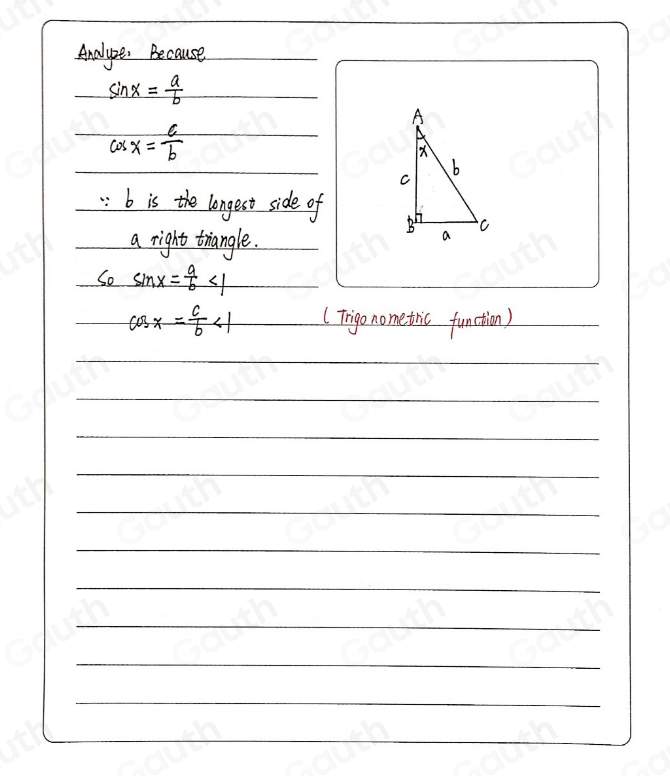 Analyze, Because
sin x = a/b
cos x = c/b
∵ b is the longest side of
a right triangle.
So sin x = a/b < 1
cos x = c/b < 1
(Trigonometric function)
A
x
c
b
B
a
C
Gauth